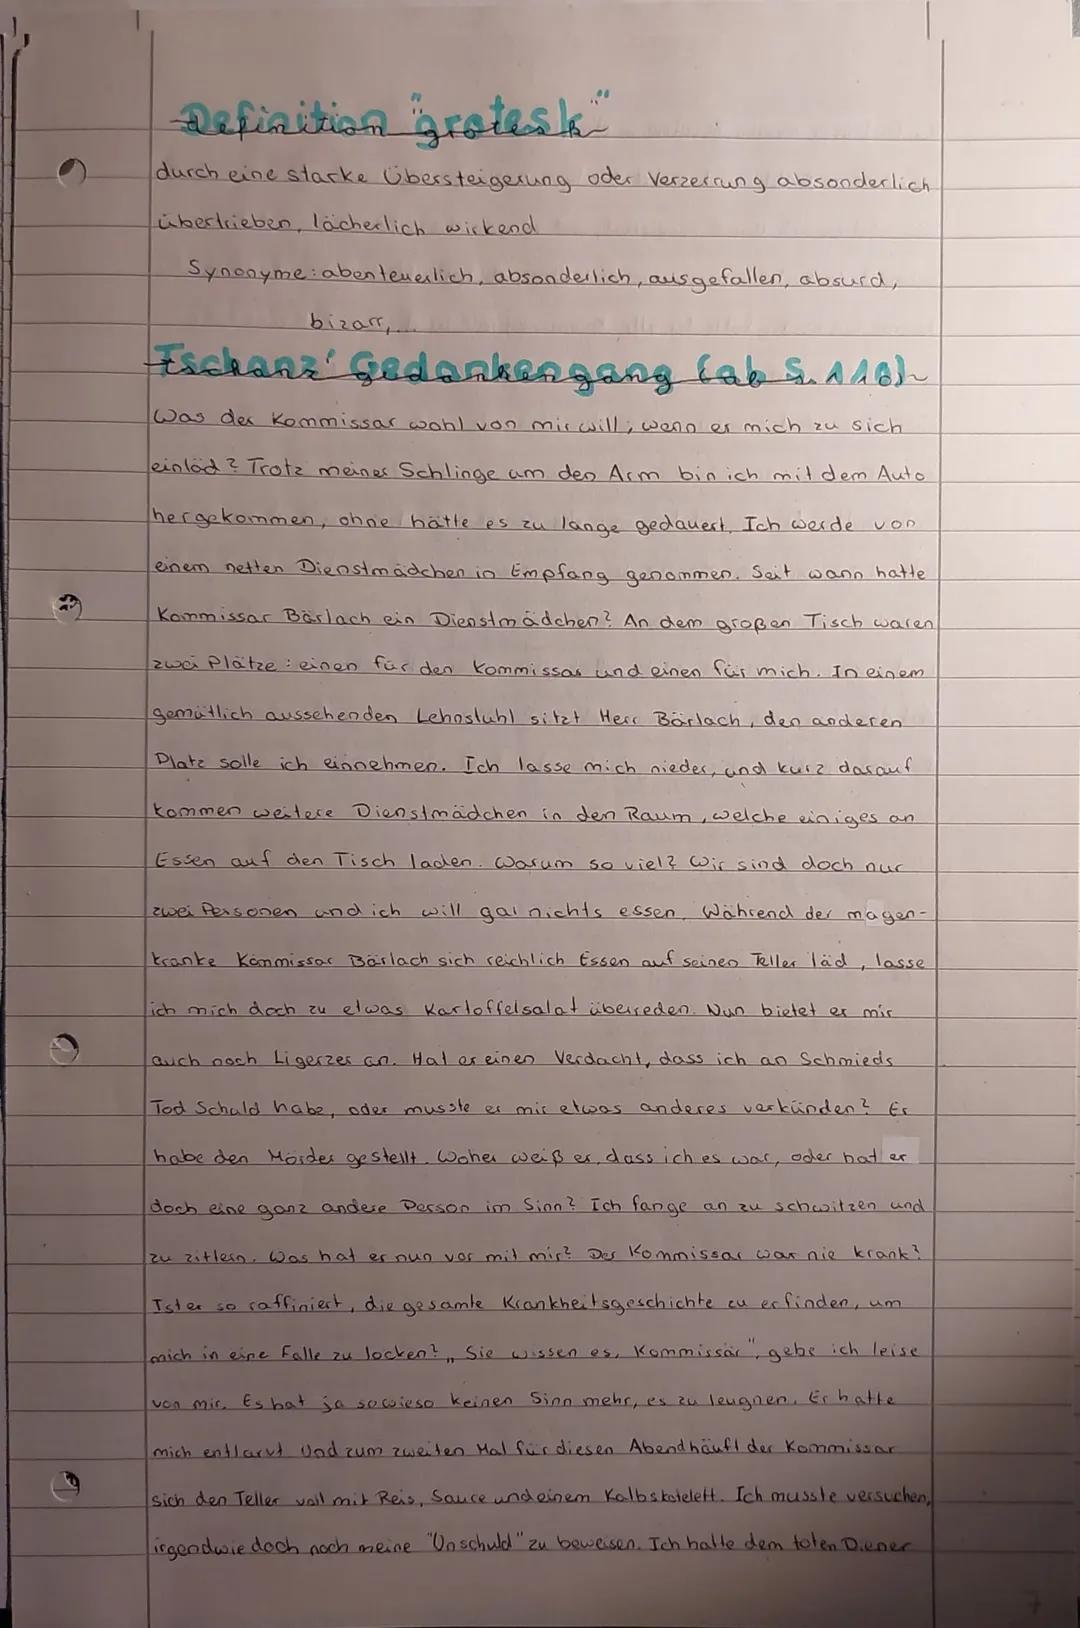 Definition "grotesk"
durch eine starke Übersteigerung oder Verzerrung absonderlich
übertrieben, lächerlich wirkend
Synonyme: abenteuerlich, absonderlich, ausgefallen, absurd,
bizarr,...
Tschanz' Gedankengang (ab S. 118)
Was der Kommissar wohl von mir will, wenn er mich zu sich
einläd? Trotz meiner Schlinge um den Arm bin ich mit dem Auto
hergekommen, ohne hätte es zu lange gedauert. Ich werde von
einem netten Dienstmädchen in Empfang genommen. Seit wann hatte
Kommissar Bärlach ein Dienstmädchen? An dem großen Tisch waren
zwei Plätze: einen für den Kommissar und einen für mich. In einem
gemütlich aussehenden Lehnstuhl sitzt Herr Bärlach, den anderen
Platz solle ich einnehmen. Ich lasse mich nieder, und kurz darauf
kommen weitere Dienstmädchen in den Raum, welche einiges an
Essen auf den Tisch laden. Warum so viel? Wir sind doch nur
zwei Personen und ich will gar nichts essen. Während der magen-
kranke Kommissar Bärlach sich reichlich Essen auf seinen Teller läd, lasse
ich mich doch zu etwas Kartoffelsalat überreden. Nun bietet er mir
auch noch Ligerzer an. Hat er einen Verdacht, dass ich an Schmieds
Tod Schuld habe, oder musste er mir etwas anderes verkünden? Er
habe den Mörder gestellt. Woher weiß er, dass ich es war, oder hat er
doch eine ganz andere Person im Sinn? Ich fange an zu schwitzen und
zu zittern. Was hat er nun vor mit mir? Der Kommissar war nie krank?
Ist er so raffiniert, die gesamte Krankheitsgeschichte zu erfinden, um
mich in eine Falle zu locken? „Sie wissen es, Kommissär", gebe ich leise
von mir. Es hat ja sowieso keinen Sinn mehr, es zu leugnen. Er hatte
mich entlarvt. Und zum zweiten Mal für diesen Abend häuft der Kommissar
sich den Teller voll mit Reis, Sauce und einem Kalbskotelett. Ich musste versuchen,
irgendwie doch noch meine "Unschuld" zu beweisen. Ich hatte dem toten Diener
7